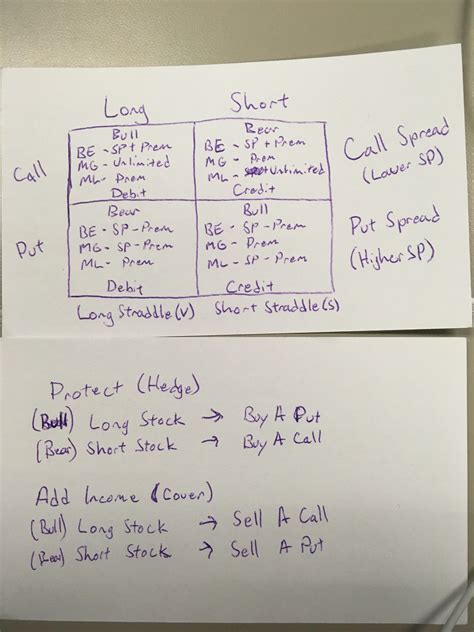 Long Short
Bull
BE - SP + Prem
MG - Unlimited
ML - Prem
Debit
Bear
BE - SP + Prem
MG - Prem
ML - Unlimited
Credit
Call
Call Spread
(Lower SP)
Bear
BE - SP - Prem
MG - SP - Prem
ML - Prem
Debit
Bull
BE - SP - Prem
MG - Prem
ML - SP - Prem
Credit
Put
Put Spread
(Higher SP)
Long Straddle (V) Short Straddle (S)
Protect (Hedge)
(Bull) Long Stock → Buy A Put
(Bear) Short Stock → Buy A Call
Add Income (Cover)
(Bull) Long Stock → Sell A Call
(Bear) Short Stock → Sell A Put